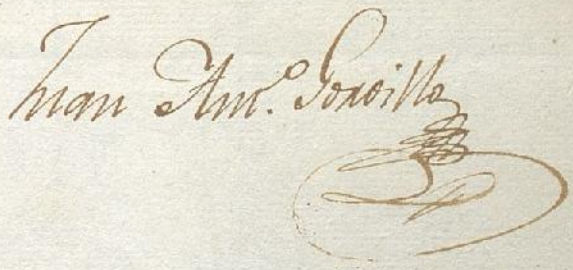 Juan Ant.º Gordillo